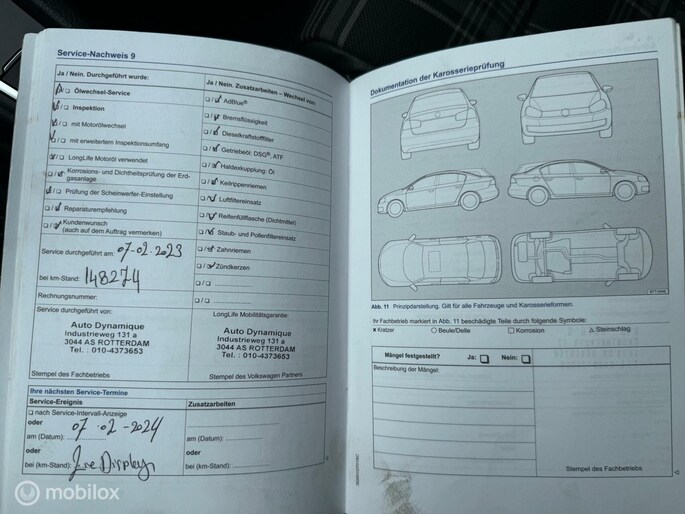 Service-Nachweis 9
Ja / Nein. Durchgeführt wurde:
Ölwechsel-Service
Inspektion
mit Motorölwechsel
mit erweitertem Inspektionsumfang
LongLife Motoröl verwendet
Korrosions- und Dichtheitsprüfung der Erd-
gasanlage
Prüfung der Scheinwerfer-Einstellung
Reparaturempfehlung
Kundenwunsch
(auch auf dem Auftrag vermerken)
Service durchgeführt am: 07-02-2023
bei km-Stand: 148274
Rechnungsnummer:
Service durchgeführt von:
Auto Dynamique
Industrieweg 131 a
3044 AS ROTTERDAM
Tel. : 010-4373653
Stempel des Fachbetriebs
Ja / Nein. Zusatzarbeiten – Wechsel von:
AdBlue®
Bremsflüssigkeit
Dieselkraftstofffilter
Getriebeöl: DSG®, ATF
Haldexkupplung: Öl
Keilrippenriemen
Luftfiltereinsatz
Reifenfüllflasche (Dichtmittel)
Staub- und Pollenfiltereinsatz
Zahnriemen
Zündkerzen
LongLife Mobilitätsgarantie:
Auto Dynamique
Industrieweg 131 a
3044 AS ROTTERDAM
Tel. : 010-4373653
Stempel des Volkswagen Partners
Ihre nächsten Service-Termine
Service-Ereignis
nach Service-Intervall-Anzeige
oder
am (Datum): 07-02-2024
oder
bei (km-Stand):
Zusatzarbeiten
am (Datum):
oder
bei (km-Stand):
Dokumentation der Karosserieprüfung
Abb. 11 Prinzipdarstellung. Gilt für alle Fahrzeuge und Karosserieformen.
Ihr Fachbetrieb markiert in Abb. 11 beschädigte Teile durch folgende Symbole:
x Kratzer ○ Beule/Delle □ Korrosion △ Steinschlag
Mängel festgestellt? Ja: Nein:
Beschreibung der Mängel:
Stempel des Fachbetriebs
mobilox